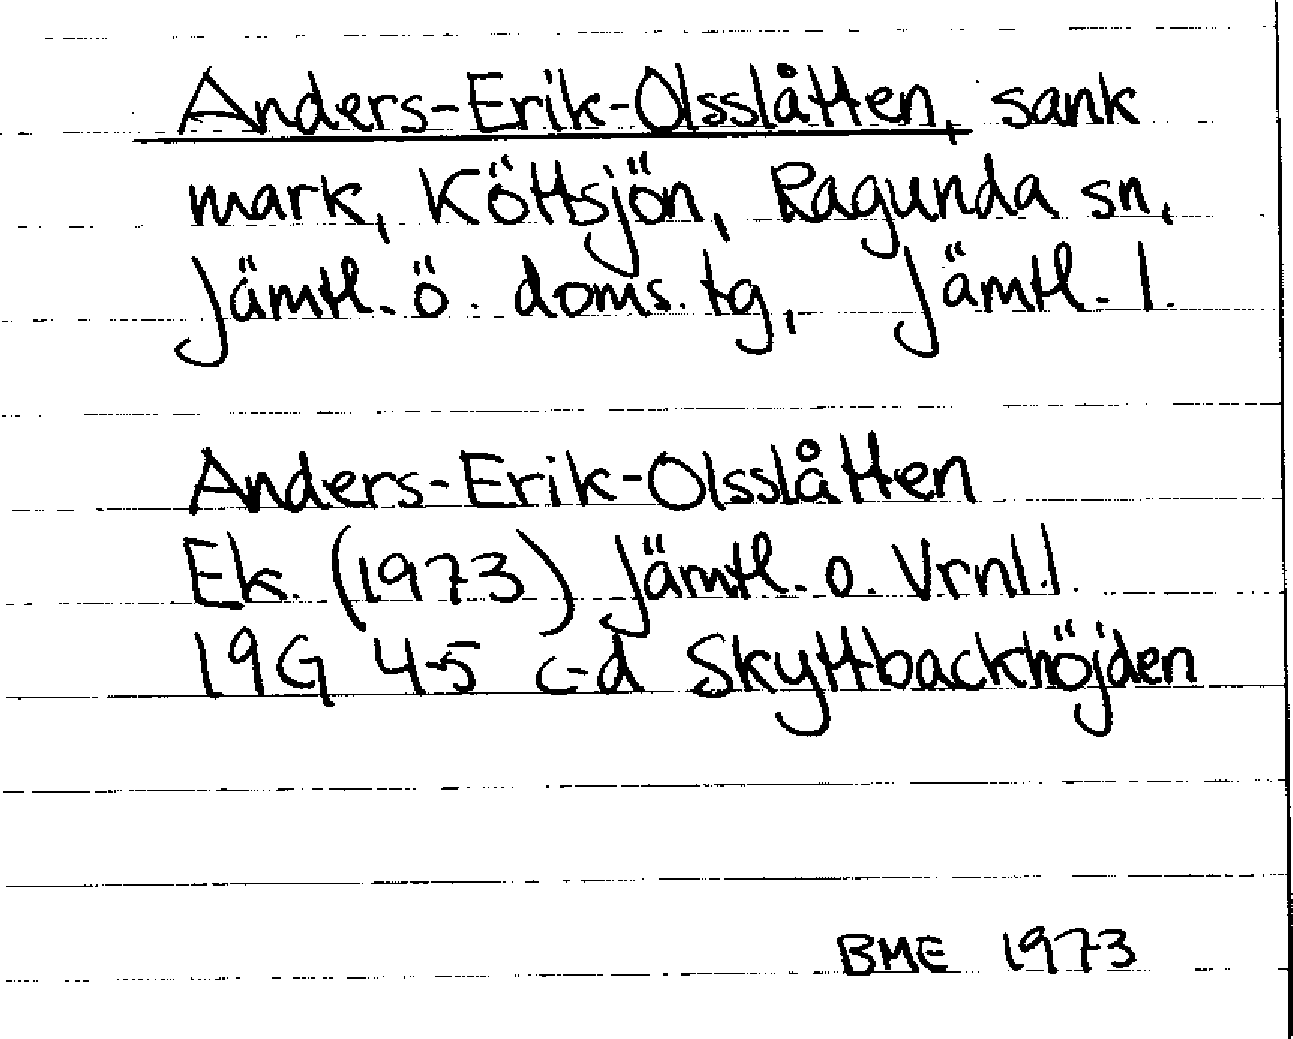 Anders-Erik-Olsslåtten, sank
mark, Köttsjön, Ragunda sn,
Jämtl. ö. doms. tg, Jämtl. l.
Anders-Erik-Olsslåtten
Ek. (1973) Jämtl. o. Vrnl.l
19G 4-5 c-d Skyttbackhöjden
BME 1973